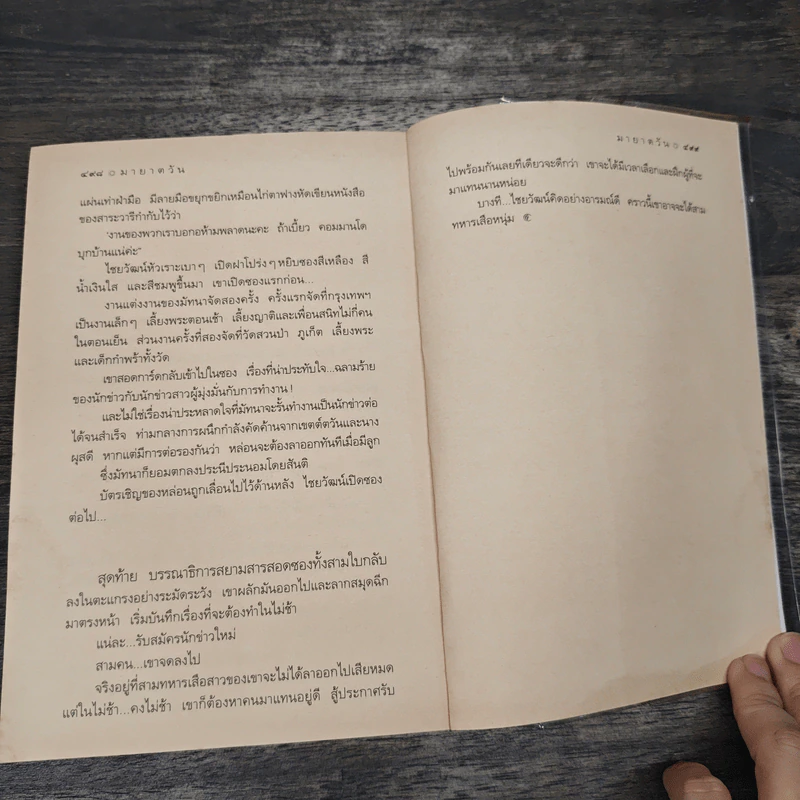 ๔๙๘ มายาตวัน
แผ่นเท่าฝ่ามือ มีลายมือขยุกขยิกเหมือนไก่ตาฟางหัดเขียนหนังสือ
ของสาระวารีกำกับไว้ว่า
"งานของพวกเราบอกอห้ามพลาดนะคะ ถ้าเบี้ยว คอมมานโด
บุกบ้านแน่ค่ะ"
ไชยวัฒน์หัวเราะเบาๆ เปิดฝาโปร่งๆ หยิบซองสีเหลือง สี
น้ำเงินใส และสีชมพูขึ้นมา เขาเปิดซองแรกก่อน...
งานแต่งงานของมัทนาจัดสองครั้ง ครั้งแรกจัดที่กรุงเทพฯ
เป็นงานเล็กๆ เลี้ยงพระตอนเช้า เลี้ยงญาติและเพื่อนสนิทไม่กี่คน
ในตอนเย็น ส่วนงานครั้งที่สองจัดที่วัดสวนป่า ภูเก็ต เลี้ยงพระ
และเด็กกำพร้าทั้งวัด
เขาสอดการ์ดกลับเข้าไปในซอง เรื่องที่น่าประทับใจ...ฉลามร้าย
ของนักข่าวกับนักข่าวสาวผู้มุ่งมั่นกับการทำงาน !
และไม่ใช่เรื่องน่าประหลาดใจที่มัทนาจะรั้นทำงานเป็นนักข่าวต่อ
ได้จนสำเร็จ ท่ามกลางการผนึกกำลังคัดค้านจากเขตต์ตวันและนาง
ผุสดี หากแต่มีการต่อรองกันว่า หล่อนจะต้องลาออกทันทีเมื่อมีลูก
ซึ่งมัทนาก็ยอมตกลงประนีประนอมโดยสันติ
บัตรเชิญของหล่อนถูกเลื่อนไปไว้ด้านหลัง ไชยวัฒน์เปิดซอง
ต่อไป...
สุดท้าย บรรณาธิการสยามสารสอดซองทั้งสามใบกลับ
ลงในตะแกรงอย่างระมัดระวัง เขาผลักมันออกไปและลากสมุดฉีก
มาตรงหน้า เริ่มบันทึกเรื่องที่จะต้องทำในไม่ช้า
แน่ละ...รับสมัครนักข่าวใหม่
สามคน...เขาจดลงไป
จริงอยู่ที่สามทหารเสือสาวของเขาจะไม่ได้ลาออกไปเสียหมด
แต่ในไม่ช้า...คงไม่ช้า เขาก็ต้องหาคนมาแทนอยู่ดี สู้ประกาศรับ
มายาตวัน ๔๙๙
ไปพร้อมกันเลยทีเดียวจะดีกว่า เขาจะได้มีเวลาเลือกและฝึกผู้ที่จะ
มาแทนนานหน่อย
บางที...ไชยวัฒน์คิดอย่างอารมณ์ดี คราวนี้เขาอาจจะได้สาม
ทหารเสือหนุ่ม